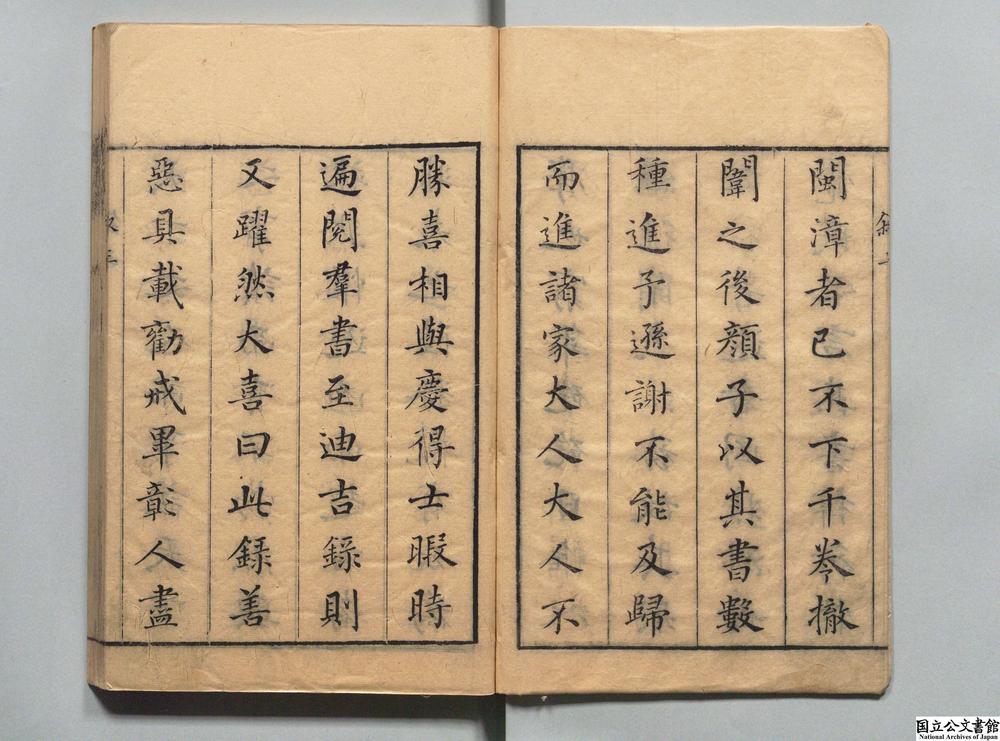 閩漳者已不下千卷撤
闈之後顔子以其書數
種進予遜謝不能及歸
而進諸家大人大人不
勝喜相與慶得士暇時
遍閱羣書至迪吉錄則
又躍然大喜曰此錄善
惡具載勸戒畢彰人盡
国立公文書館
National Archives of Japan